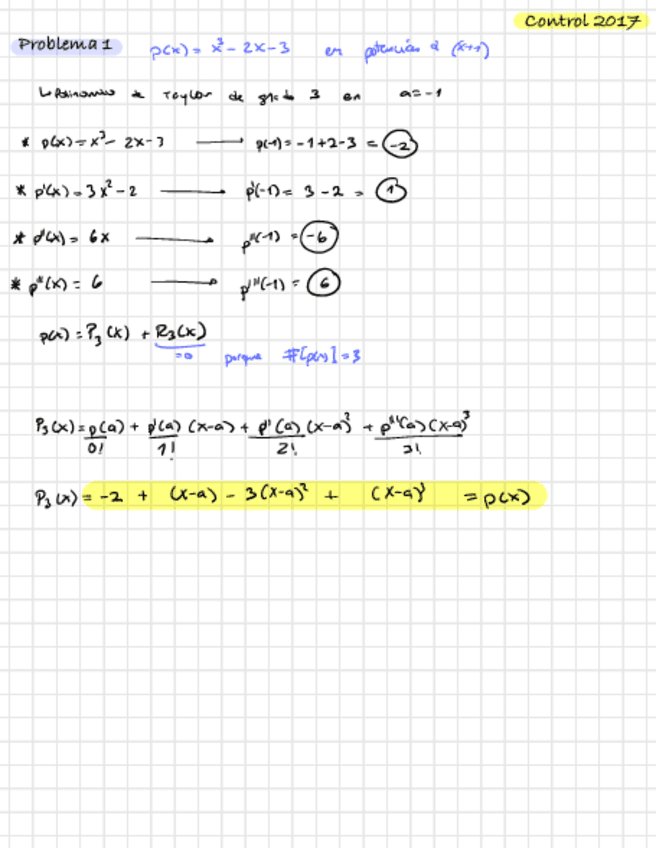 Control 2017
Problema 1 p(x) = x³ - 2x - 3 en potencias d (x+1)
↳ Polinomio de Taylor de grado 3 en a = -1
* p(x) = x³ - 2x - 3 → p(-1) = -1 + 2 - 3 = -2
* p'(x) = 3x² - 2 → p'(-1) = 3 - 2 = 1
* p''(x) = 6x → p''(-1) = -6
* p'''(x) = 6 → p'''(-1) = 6
p(x) = P₃(x) + R₃(x)
=0 porque #[p(x)] = 3
P₃(x) = p(a)/0! + p'(a)/1! (x-a) + p''(a)/2! (x-a)² + p'''(a)(x-a)³/3!
P₃(x) = -2 + (x-a) - 3(x-a)² + (x-a)³ = p(x)